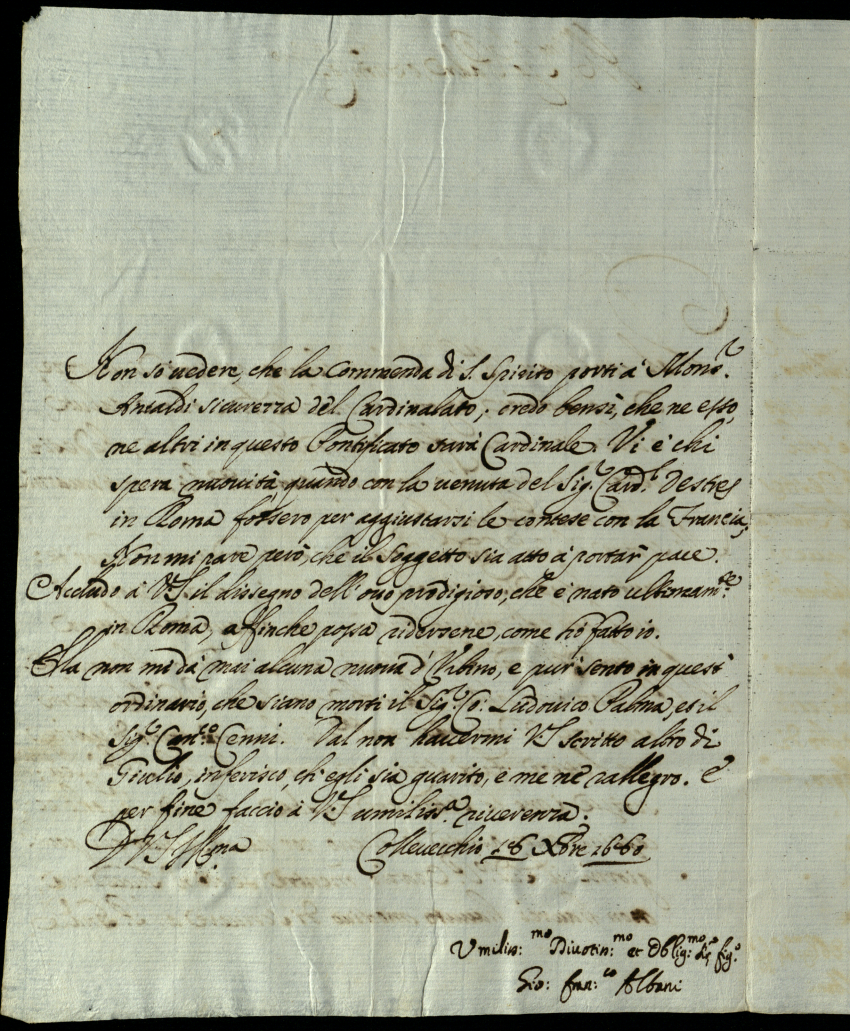 Non sò uedere, che la Commenda di S. Spirito porti à Mons.r
Antaldi sicurezza del Cardinalato, credo bensì, che ne esso,
ne altri in questo Pontificato sarà Cardinale. Vi è chi
spera nuouità, quando con la uenuta del Sig.r Card.l Destres
in Roma fossero per aggiustarsi le contese con la Francia;
Non mi pare però, che il Soggetto sia atto à portar pace.
Accludo à V.S. il dissegno dell'ouo prodigioso, che è nato ultimam.te
in Roma, affinche possa ridersene, come hò fatto io.
Ella non mi dà mai alcuna nuoua d'Vrbino, e pur sento in quest'
ordinario, che siano morti il Sig.r Co: Ludouico Palma, et il
Sig.r Cenni. Dal non hauermi V.S. scritto altro di
Giulio, inferisco, ch'egli sia guarito, e me ne rallegro. E
per fine faccio à V.S. umiliss.a riuerenza.
D V.S. Ill.ma Colleuecchio 18 Xbre 1680
Vmiliss: mo Diuotiss: mo et Oblig: mo fig.o
Gio: Fran: co Albani